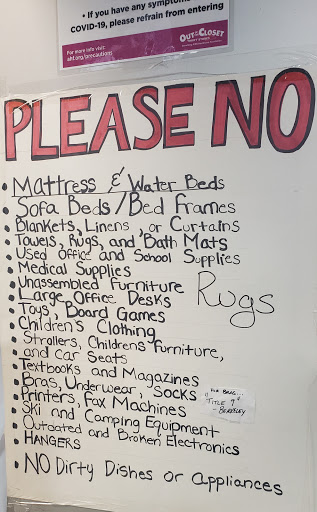 • If you have any symptoms
COVID-19, please refrain from entering
For more info visit:
ahf.org/precautions
OUT OF THE CLOSET
THRIFT STORES
PLEASE NO
• Mattress & Water Beds
• Sofa Beds/Bed Frames
• Blankets, Linens, or Curtains
• Towels, Rugs, and Bath Mats
• Used Office and School Supplies
• Medical Supplies
• Unassembled Furniture
Rugs
• Large Office Desks
• Toys, Board Games
• Children's Clothing
• Strollers, Childrens Furniture,
and Car Seats
• Textbooks and Magazines
• Bras, Underwear, Socks
FOR BRAS...
"TITLE 9"
- BERKELEY
• Printers, Fax Machines
• Ski and Camping Equipment
• Outdated and Broken Electronics
• HANGERS
• NO Dirty Dishes or Appliances